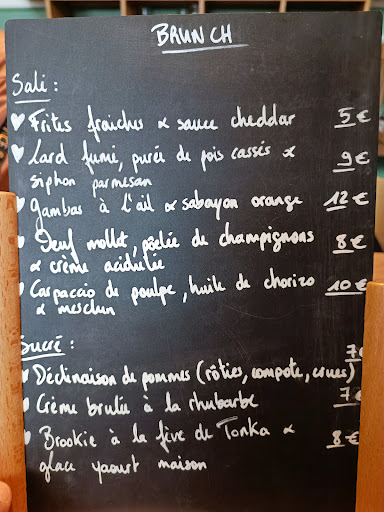 BRUNCH
Salé :
Frites fraiches & sauce cheddar 5€
Lard fumé, purée de pois cassés & 9€
siphon parmesan
Gambas à l'ail & sabayon orange 12€
Oeuf mollet, poêlée de champignons 8€
& crème acidulée
Carpaccio de poulpe, huile de chorizo 10€
& mesclun
Sucré :
7€
Déclinaison de pommes (rôties, compote, crues)
Crème brulée à la rhubarbe 7€
Brookie à la fève de Tonka & 8€
glace yaourt maison